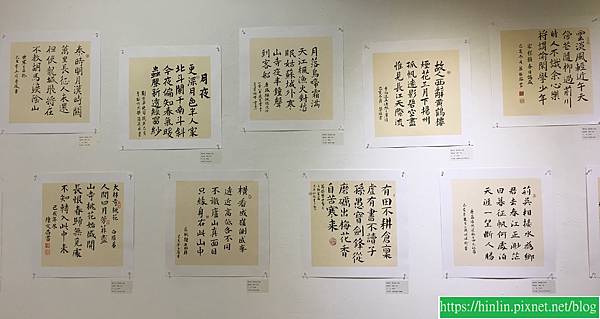 秦時明月漢時關
萬里長征人未還
但使龍城飛將在
不教胡馬度陰山
月夜
更深月色半人家
北斗闌干南斗斜
今夜偏知春氣暖
蟲聲新透綠窗紗
月落烏啼霜滿
天江楓漁火對愁
眠姑蘇城外寒
山寺夜半鐘聲
到客船
故人西辭黃鶴樓
煙花三月下揚州
孤帆遠影碧空盡
惟見長江天際流
雲淡風輕近午天
傍花隨柳過前川
時人不識余心樂
將謂偷閒學少年
大林寺桃花 白居易
人間四月芳菲盡
山寺桃花始盛開
長恨春歸無覓處
不知轉入此中來
橫看成嶺側成峯
遠近高低各不同
不識廬山真面目
只緣身在此山中
有田不耕倉廩
虛有書不讀子
孫愚寶劍鋒從
磨礪出梅花香
自苦寒來
荊吳相接水為鄉
君去春江正淼茫
日暮征帆何處泊
天涯一望斷人腸
https://hinlin.pixnet.net/blog